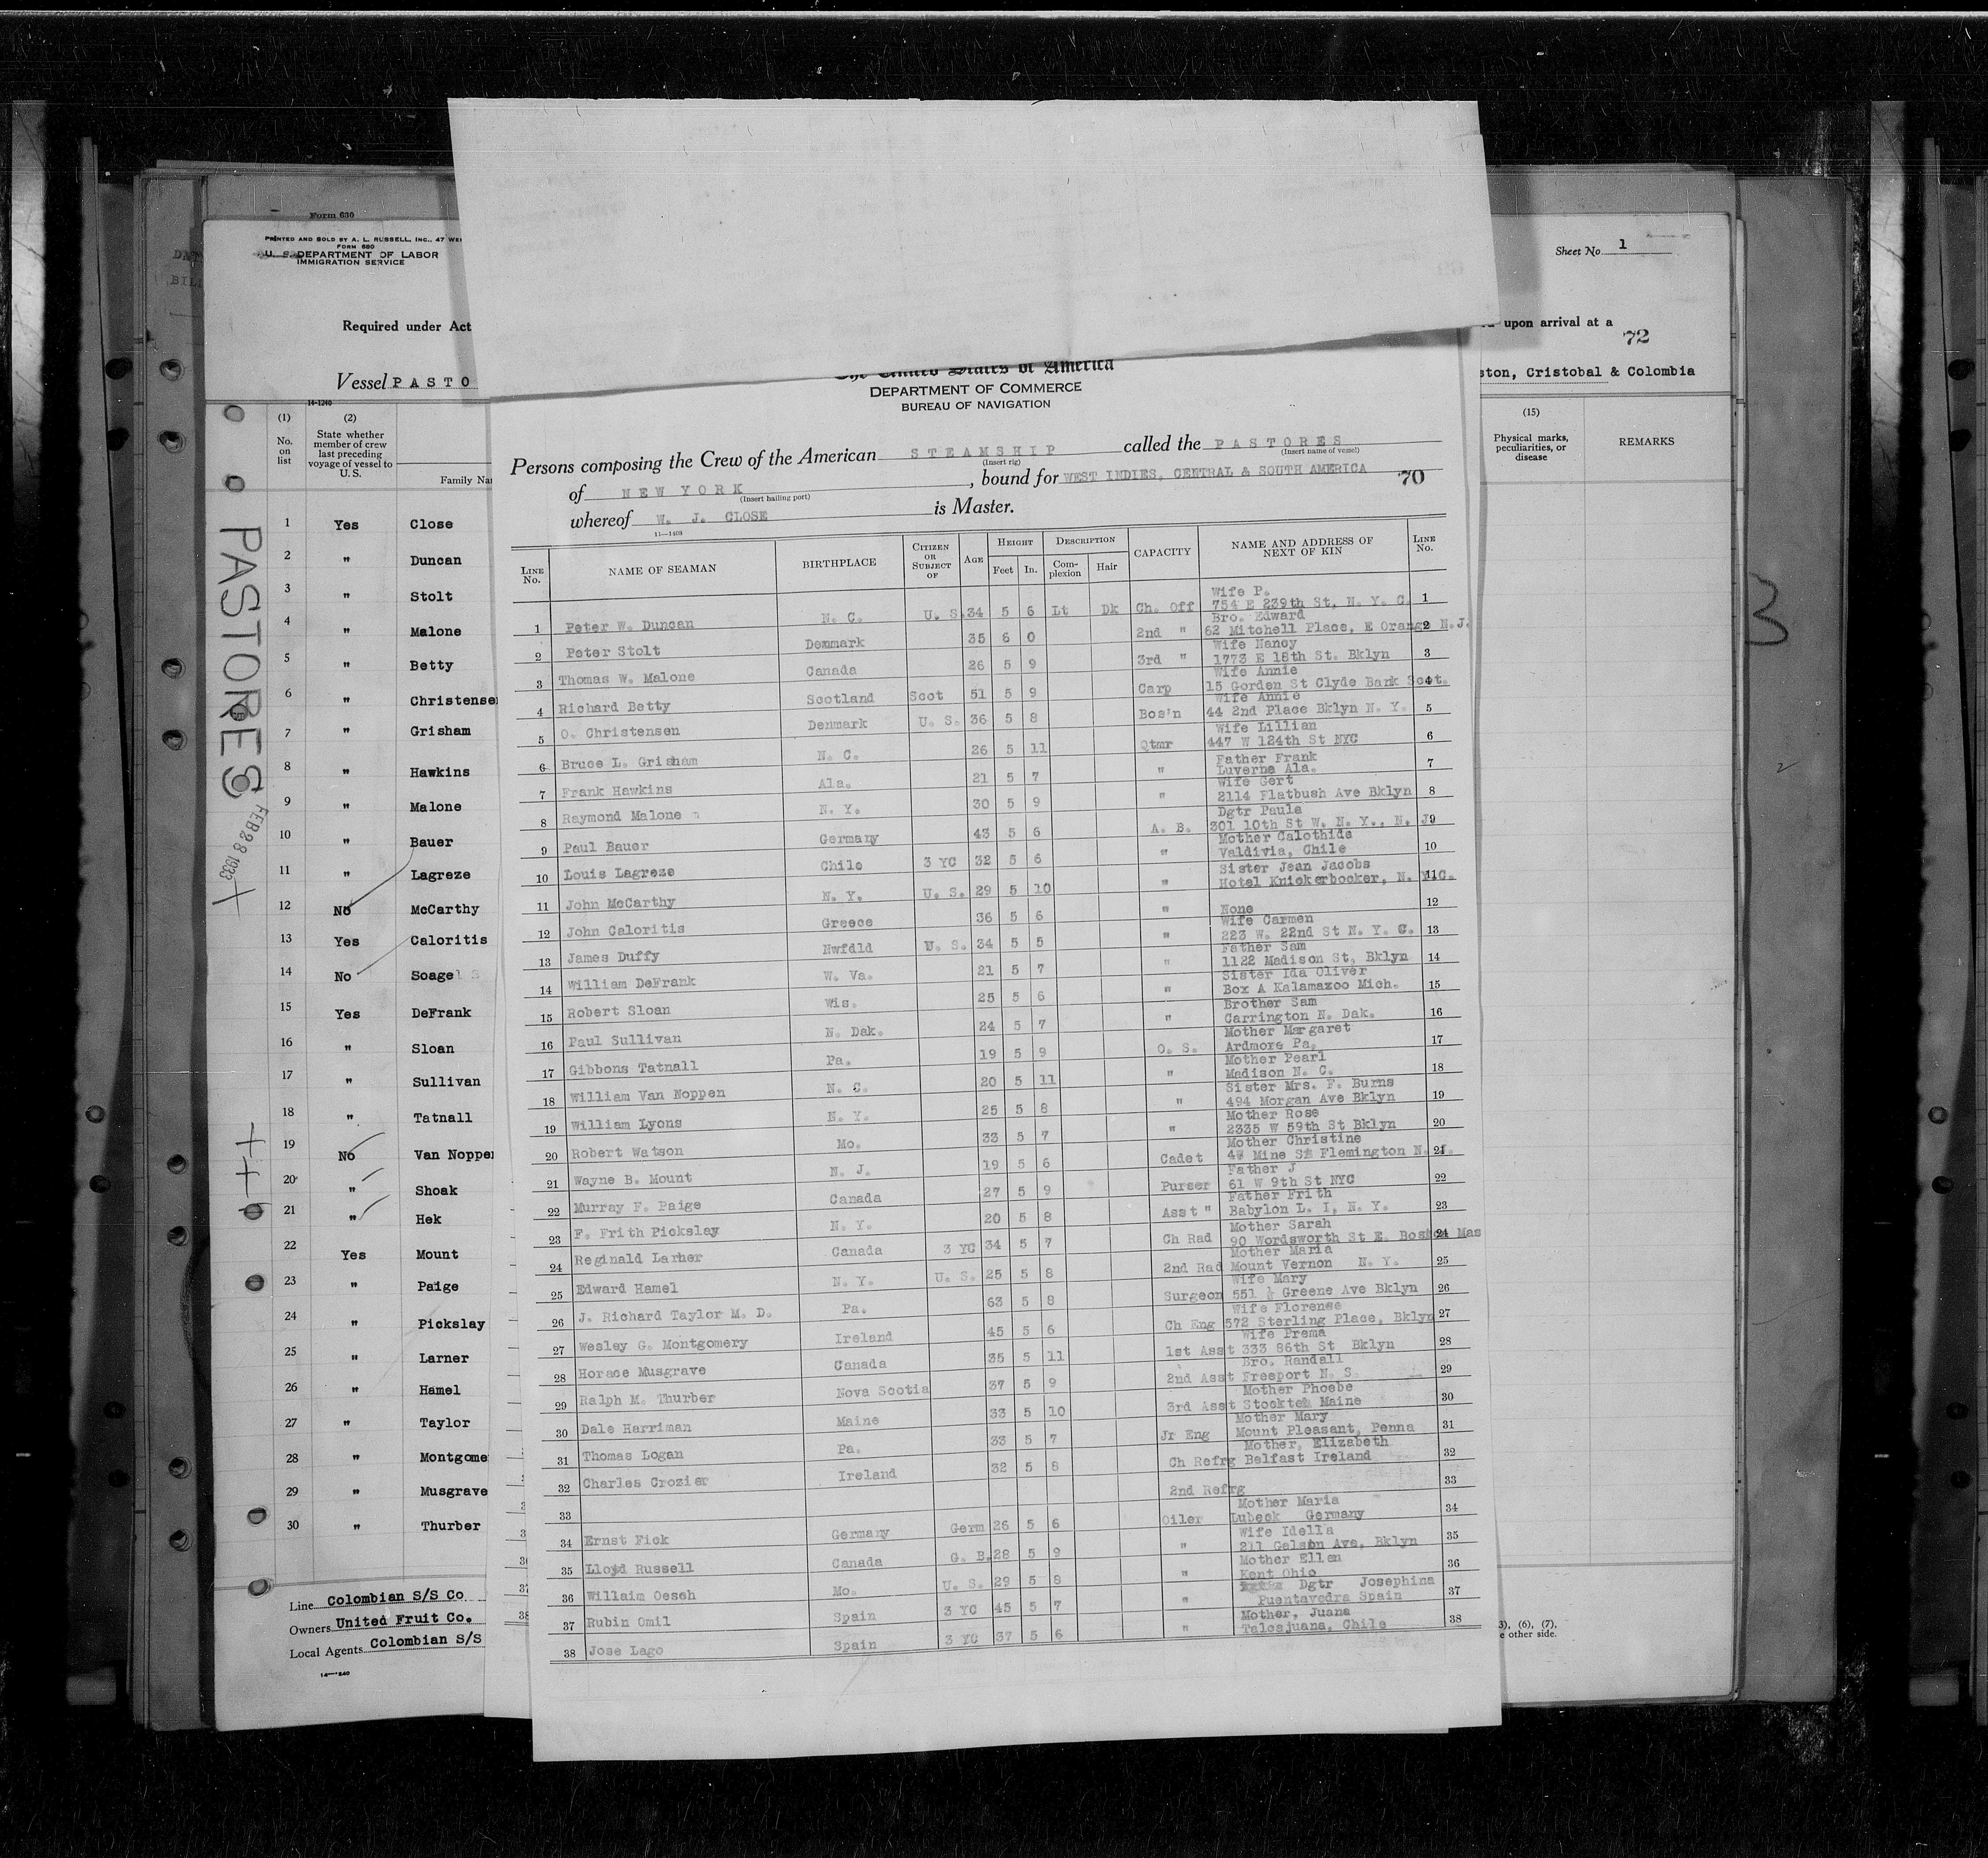 Form 630
PRINTED AND SOLD BY A. L. RUSSELL, INC., 47
FORM 680
U. S. DEPARTMENT OF LABOR
IMMIGRATION SERVICE
Sheet No. 1
Required under Act
upon arrival at a
72
Vessel PASTO
ston, Cristobal & Colombia
14-1240
(1) No. on list
(2) State whether member of crew last preceding voyage of vessel to U. S.
Family Na
(15) Physical marks, peculiarities, or disease
REMARKS
1 Yes Close
2 " Duncan
3 " Stolt
4 " Malone
5 " Betty
6 " Christense
7 " Grisham
8 " Hawkins
9 " Malone
10 " Bauer
11 " Lagreze
12 No McCarthy
13 Yes Caloritis
14 No Soage
15 Yes DeFrank
16 " Sloan
17 " Sullivan
18 " Tatnall
19 No Van Noppe
20 " Shoak
21 " Hek
22 Yes Mount
23 " Paige
24 " Pickslay
25 " Larner
26 " Hamel
27 " Taylor
28 " Montgome
29 " Musgrave
30 " Thurber
Line Colombian S/S Co
Owners United Fruit Co.
Local Agents Colombian S/S
14-1240
PASTORES
FEB 28 1933
3), (6), (7),
e other side.
3
The United States of America
DEPARTMENT OF COMMERCE
BUREAU OF NAVIGATION
Persons composing the Crew of the American STEAMSHIP called the PASTORES
(Insert rig) (Insert name of vessel)
of NEW YORK, bound for WEST INDIES, CENTRAL & SOUTH AMERICA 70
(Insert hailing port)
whereof W. J. CLOSE is Master.
11-1403
LINE No. NAME OF SEAMAN BIRTHPLACE CITIZEN OR SUBJECT OF AGE HEIGHT Feet In. DESCRIPTION Complexion Hair CAPACITY NAME AND ADDRESS OF NEXT OF KIN LINE No.
Wife P.
1 Peter W. Duncan N. C. U. S. 34 5 6 Lt Dk Ch. Off 754 E 239th St, N. Y. C. 1
Bro. Edward
2 Peter Stolt Denmark 35 6 0 2nd " 62 Mitchell Place, E Orange N.J. 2
Wife Nancy
3 Thomas W. Malone Canada 26 5 9 3rd " 1773 E 18th St. Bklyn 3
Wife Annie
4 Richard Betty Scotland Scot 51 5 9 Carp 15 Gorden St Clyde Bank Scot. 4
Wife Annie
5 O. Christensen Denmark U. S. 36 5 8 Bos'n 44 2nd Place Bklyn N. Y. 5
Wife Lillian
6 Bruce L. Grisham N. C. 26 5 11 Qtmr 447 W 124th St NYC 6
Father Frank
7 Frank Hawkins Ala. 21 5 7 " Luverne Ala. 7
Wife Gert
8 Raymond Malone N. Y. 30 5 9 " 2114 Flatbush Ave Bklyn 8
Dgtr Paula
9 Paul Bauer Germany 43 5 6 A. B. 301 10th St W. N. Y., N. J 9
Mother Calothide
10 Louis Lagreze Chile 3 YC 32 5 6 " Valdivia, Chile 10
Sister Jean Jacobs
11 John McCarthy N. Y. U. S. 29 5 10 " Hotel Knickerbocker, N. Y. C. 11
12 John Caloritis Greece 36 5 6 " None 12
Wife Carmen
13 James Duffy Nwfdld U. S. 34 5 5 " 223 W. 22nd St N. Y. C. 13
Father Sam
14 William DeFrank W. Va. 21 5 7 " 1122 Madison St, Bklyn 14
Sister Ida Oliver
15 Robert Sloan Wis. 25 5 6 " Box A Kalamazoo Mich. 15
Brother Sam
16 Paul Sullivan N. Dak. 24 5 7 " Carrington N. Dak. 16
Mother Margaret
17 Gibbons Tatnall Pa. 19 5 9 O. S. Ardmore Pa. 17
Mother Pearl
18 William Van Noppen N. C. 20 5 11 " Madison N. C. 18
Sister Mrs. F. Burns
19 William Lyons N. Y. 25 5 8 " 494 Morgan Ave Bklyn 19
Mother Rose
20 Robert Watson Mo. 33 5 7 " 2335 W 59th St Bklyn 20
Mother Christine
21 Wayne B. Mount N. J. 19 5 6 Cadet Mine St Flemington N. J. 21
Father J
22 Murray F. Paige Canada 27 5 9 Purser 61 W 9th St NYC 22
Father Frith
23 F. Frith Pickslay N. Y. 20 5 8 Asst " Babylon L. I, N. Y. 23
Mother Sarah
24 Reginald Larner Canada 3 YC 34 5 7 Ch Rad 90 Wordsworth St E. Boston Mas 24
Mother Maria
25 Edward Hamel N. Y. U. S. 25 5 8 2nd Rad Mount Vernon N. Y. 25
Wife Mary
26 J. Richard Taylor M. D. Pa. 63 5 8 Surgeon 551 ½ Greene Ave Bklyn 26
Wife Florense
27 Wesley G. Montgomery Ireland 45 5 6 Ch Eng 572 Sterling Place, Bklyn 27
Wife Prema
28 Horace Musgrave Canada 35 5 11 1st Asst 333 86th St Bklyn 28
Bro. Randall
29 Ralph M. Thurber Nova Scotia 37 5 9 2nd Asst Freeport N. S. 29
Mother Phoebe
30 Dale Harriman Maine 33 5 10 3rd Asst Stockton Maine 30
Mother Mary
31 Thomas Logan Pa. 33 5 7 Jr Eng Mount Pleasant, Penna 31
Mother, Elizabeth
32 Charles Crozier Ireland 32 5 8 Ch Refrg Belfast Ireland 32
33 2nd Refrg 33
Mother Maria
34 Ernst Fick Germany Germ 26 5 6 Oiler Lubeck Germany 34
Wife Idella
35 Lloyd Russell Canada G. B. 28 5 9 " 211 Galson Ave, Bklyn 35
Mother Ellen
36 Willaim Oesch Mo. U. S. 29 5 8 " Kent Ohio 36
Dgtr Josephina
37 Rubin Omil Spain 3 YC 45 5 7 " Puentavedra Spain 37
Mother, Juana
38 Jose Lago Spain 3 YC 37 5 6 " Talcajuana, Chile 38